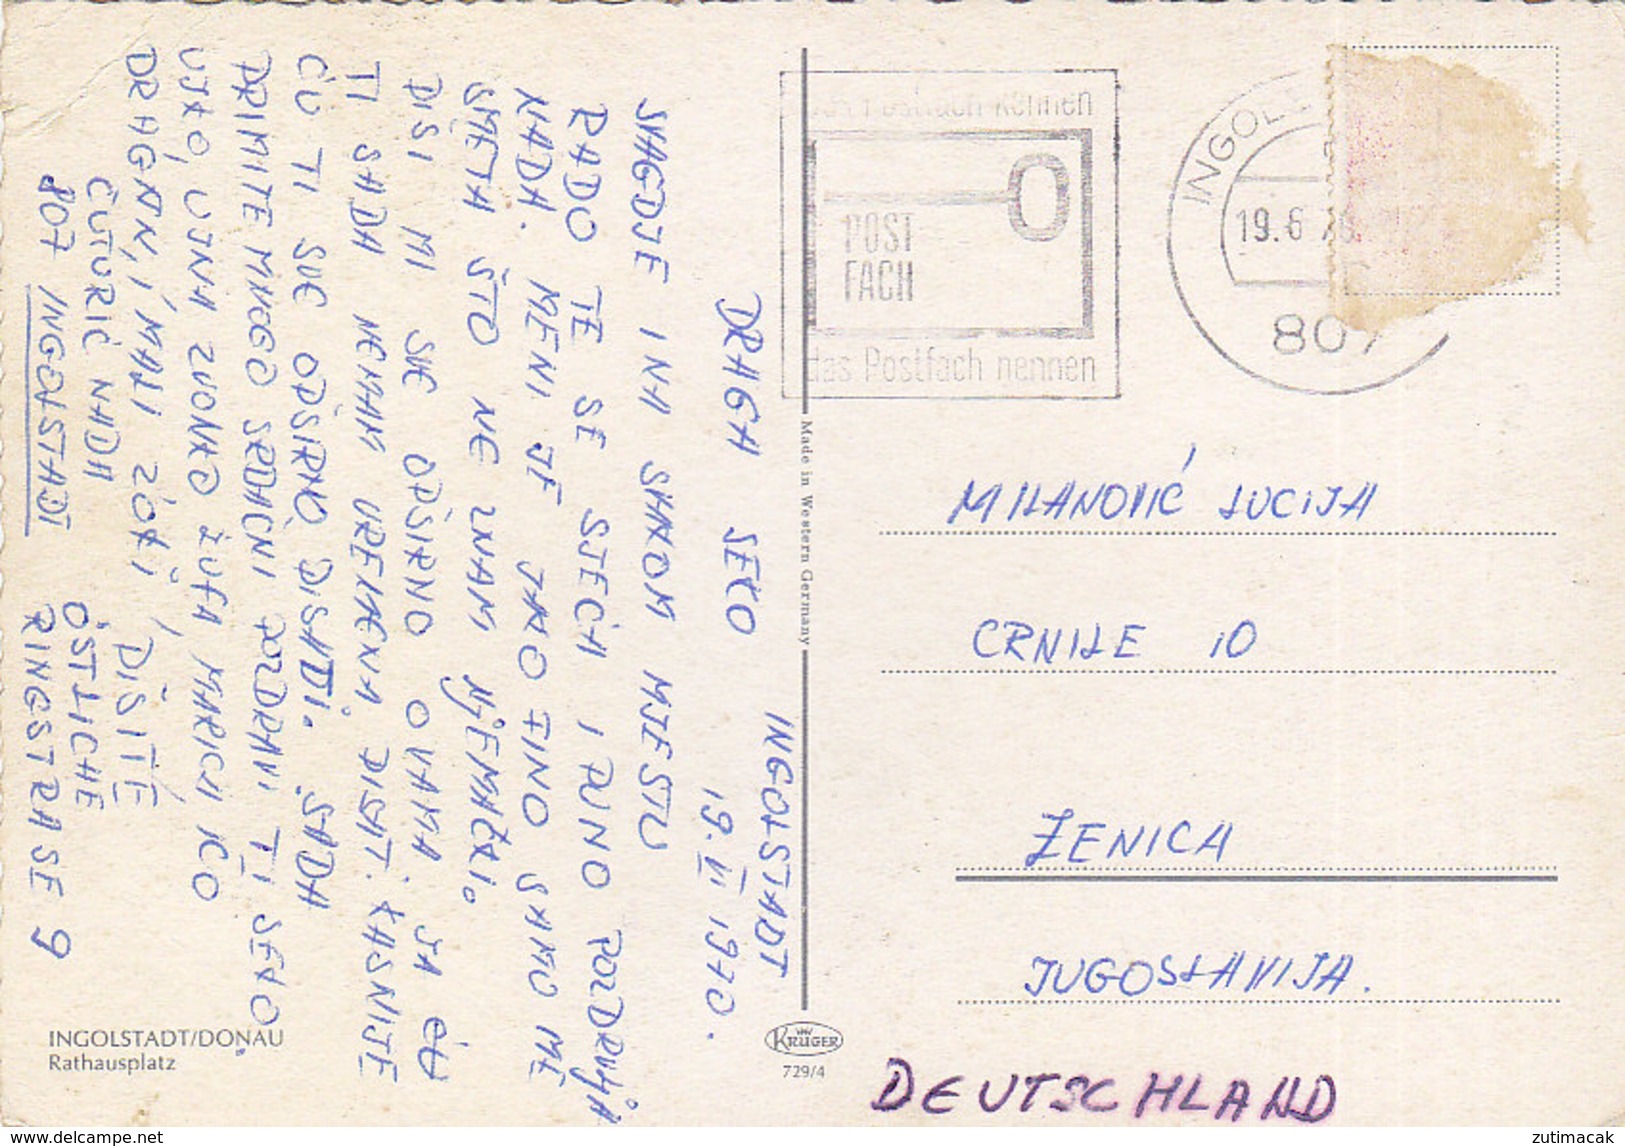 INGOLSTADT
19. VI 1970.
DRAGA SEKO
SVAGDJE I NA SVAKOM MJESTU
RADO TE SE SJEĆA I PUNO POZDRAVLJA
NADA. MENI JE JAKO FINO SAMO ME
SMETA ŠTO NE ZNAM NJEMAČKI.
PIŠI MI SVE OPŠIRNO O VAMA. JA ĆU
TI SADA NEMAM VREMENA PISAT. KASNIJE
ĆU TI SVE OPŠIRNO PISATI. SADA
PRIMITE MNOGO SRDAČNI POZDRAVI TI SEKO
UJKO, UJNA ZVONKO ŽUFA MARICA ICO
DRAGAN, I MALI ZOKI
PIŠITE
ČUTURIĆ NADA
ÖSTLICHE
807 INGOLSTADT
RINGSTRASE 9
INGOLSTADT/DONAU
Rathausplatz
Made in Western Germany
KRÜGER
729/4
Postfach kennen
POST
FACH
das Postfach nennen
INGOL
19.6.70
807
MILANOVIĆ LUCIJA
CRNILE 10
ZENICA
JUGOSLAVIJA.
DEUTSCHLAND
zutimacak